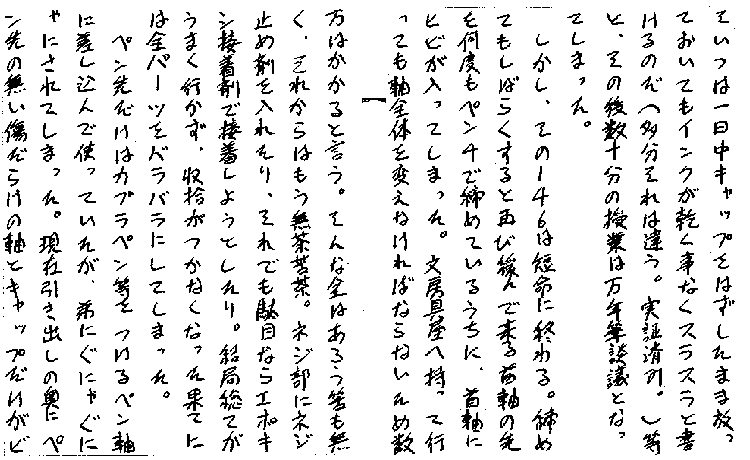 ていつは一日中キャップをはずしたまま放っ
ておいてもインクが乾く事なくスラスラと書
けるのだ(多分それは違う。実証済み)。」等
と、その後数十分の授業は万年筆談議となっ
てしまった。
しかし、その146は短命に終わる。締め
てもしばらくすると再び緩んで来る首軸の先
を何度もペンチで締めているうちに、首軸に
ヒビが入ってしまった。文房具屋へ持って行
っても軸全体を変えなければならないため数
万はかかると言う。そんな金はあろう筈も無
く、それからはもう無茶苦茶。ネジ部にネジ
止め剤を入れたり、それでも駄目ならエポキ
シ接着剤で接着しようとしたり。結局総てが
うまく行かず、収拾がつかなくなった果てに
は全パーツをバラバラにしてしまった。
ペン先だけはカブラペン等をつけるペン軸
に差し込んで使っていたが、弟にぐにゃぐに
ゃにされてしまった。現在引き出しの奥にペ
ン先の無い傷だらけの軸とキャップだけがビ